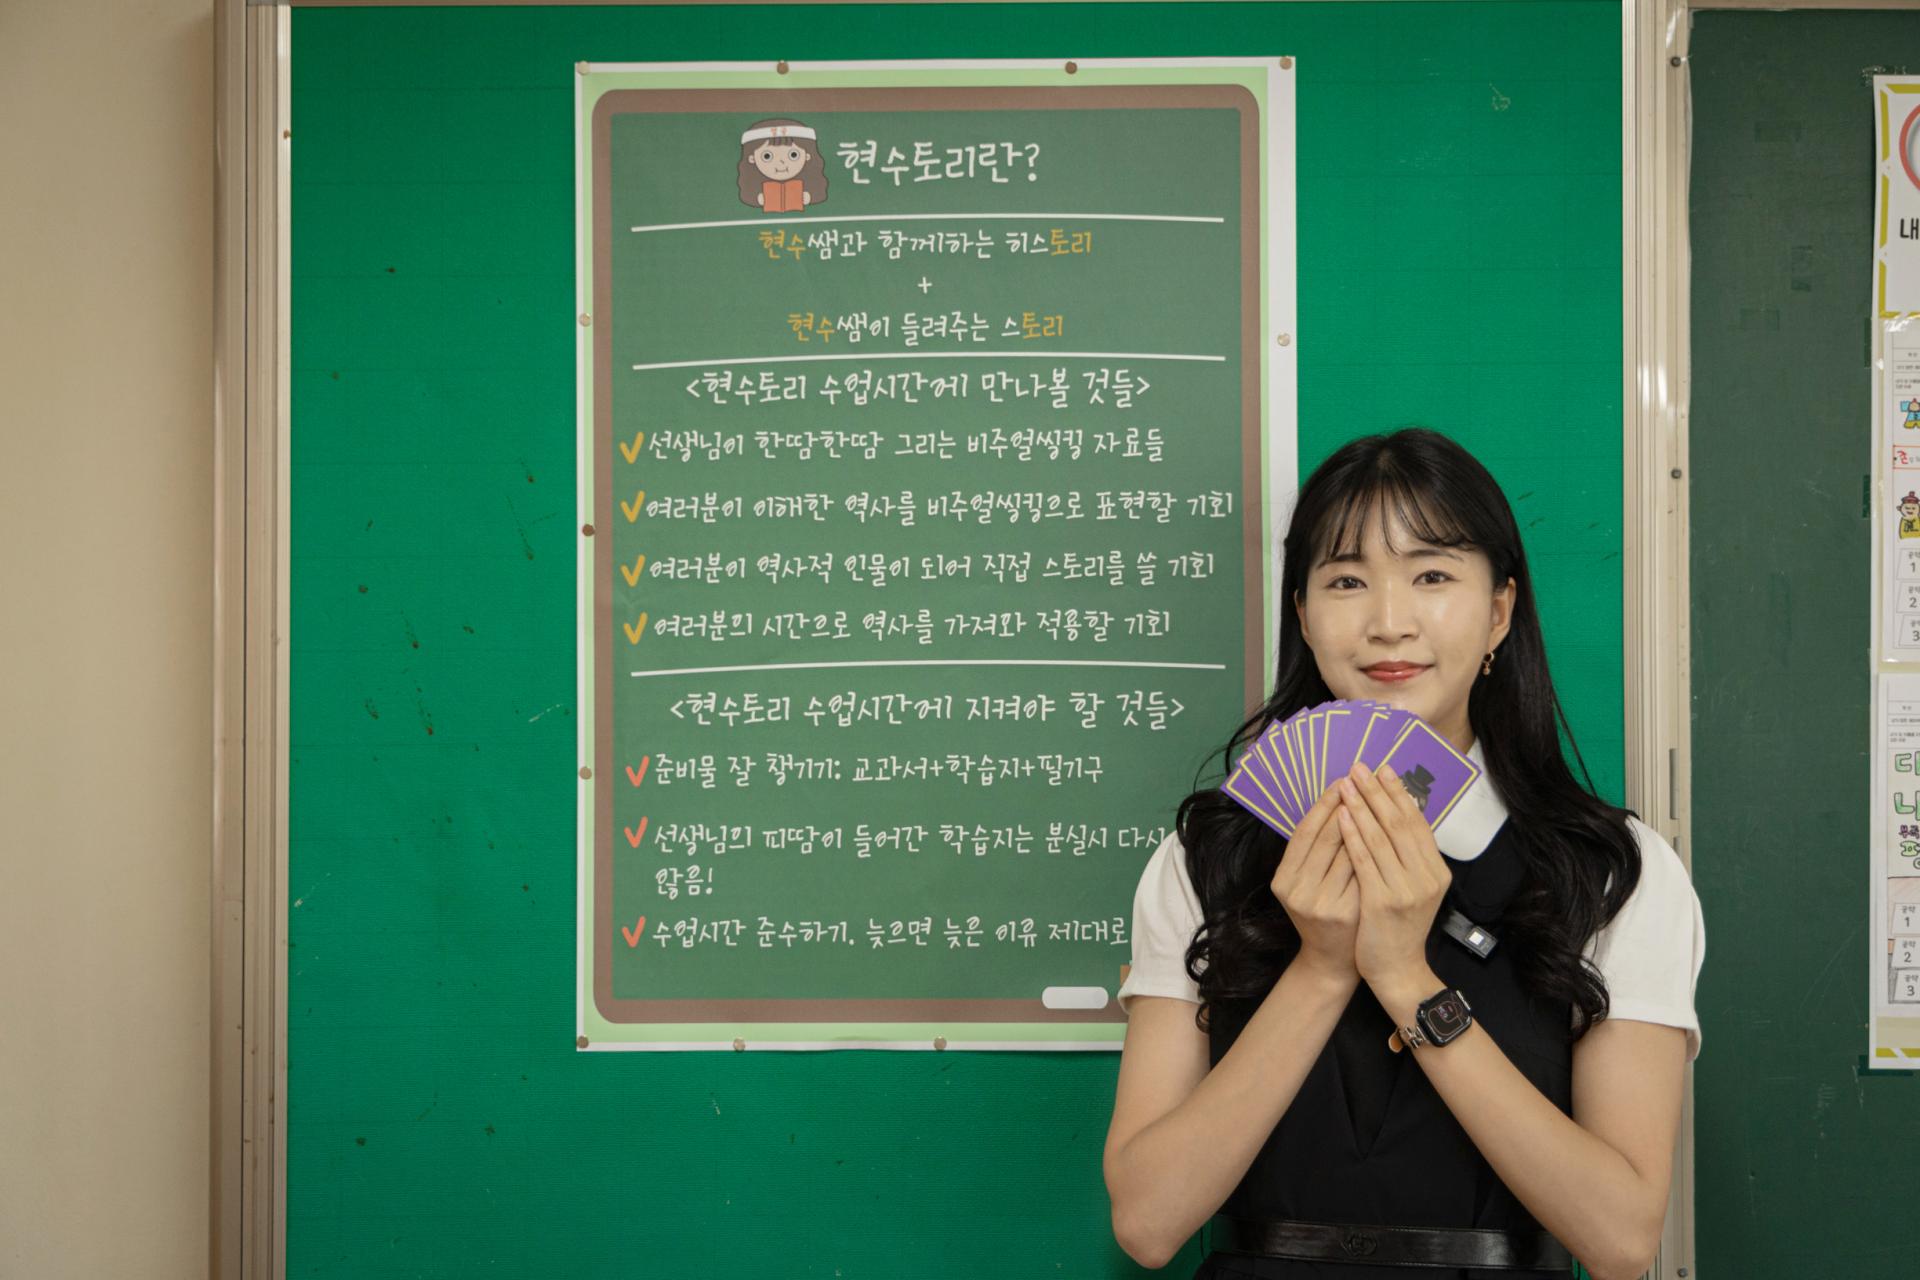 현수토리란?
현수쌤과 함께하는 히스토리
+
현수쌤이 들려주는 스토리
<현수토리 수업시간에 만나볼 것들>
선생님이 한땀한땀 그리는 비주얼씽킹 자료들
여러분이 이해한 역사를 비주얼씽킹으로 표현할 기회
여러분이 역사적 인물이 되어 직접 스토리를 쓸 기회
여러분의 시간으로 역사를 가져와 적용할 기회
<현수토리 수업시간에 지켜야 할 것들>
준비물 잘 챙기기: 교과서+학습지+필기구
선생님의 피땀이 들어간 학습지는 분실시 다시
않음!
수업시간 준수하기. 늦으면 늦은 이유 제대로
내
공약
1
2
3
공약
1
공약
2
공약
3